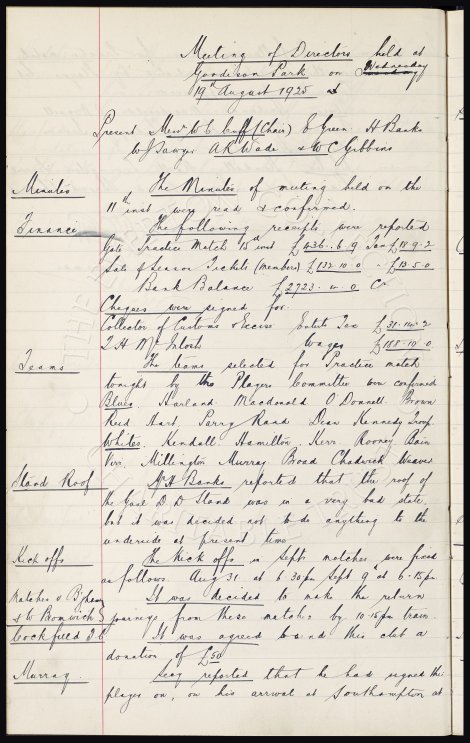 Meeting of Directors held at
Goodison Park on Wednesday
19th August 1925 at
Present Messrs W C Cuff (Chair) E Green H Banks
W J Sawyer A R Wade & W C Gibbins
Minutes The Minutes of meeting held on the
11th inst were read & confirmed.
Finance The following receipts were reported
Gate Practice Match 15th inst £436. 6. 9 Tax £18. 9. 2
Sale of Season Tickets (members) £132. 10. 0 £13. 5. 0
Bank Balance £2723. 4. 0 Cr
Cheques were signed for
Collector of Customs & Excise Ents Tax £31. 14. 2
T. H. McIntosh Wages £188. 10. 0
Teams The teams selected for Practice match
tonight by the Players Committee were confirmed
Blues. Harland Macdonald O'Donnell Brown
Reid Hart, Parry Rand Dean Kennedy Troup.
Whites. Kendall Hamilton. Kerr. Rooney Bain
Virr. Millington Murray Broad Chadwick Weaver
Stand Roof Mr H Banks reported that the roof of
the Goal D D Stand was in a very bad state,
but it was decided not to do anything to the
underside at present time
Kick offs The Kick offs in Septr matches were fixed
as follows. Aug 31. at 6. 30pm Sept 9th at 6. 15pm
Matches v B'ham It was decided to make the return
& W Bromwich journeys from these matches by 10. 15pm train.
Cockfield It was agreed to send this club a
donation of £50
Murray. Secy reported that he had signed this
player on, on his arrival at Southampton at